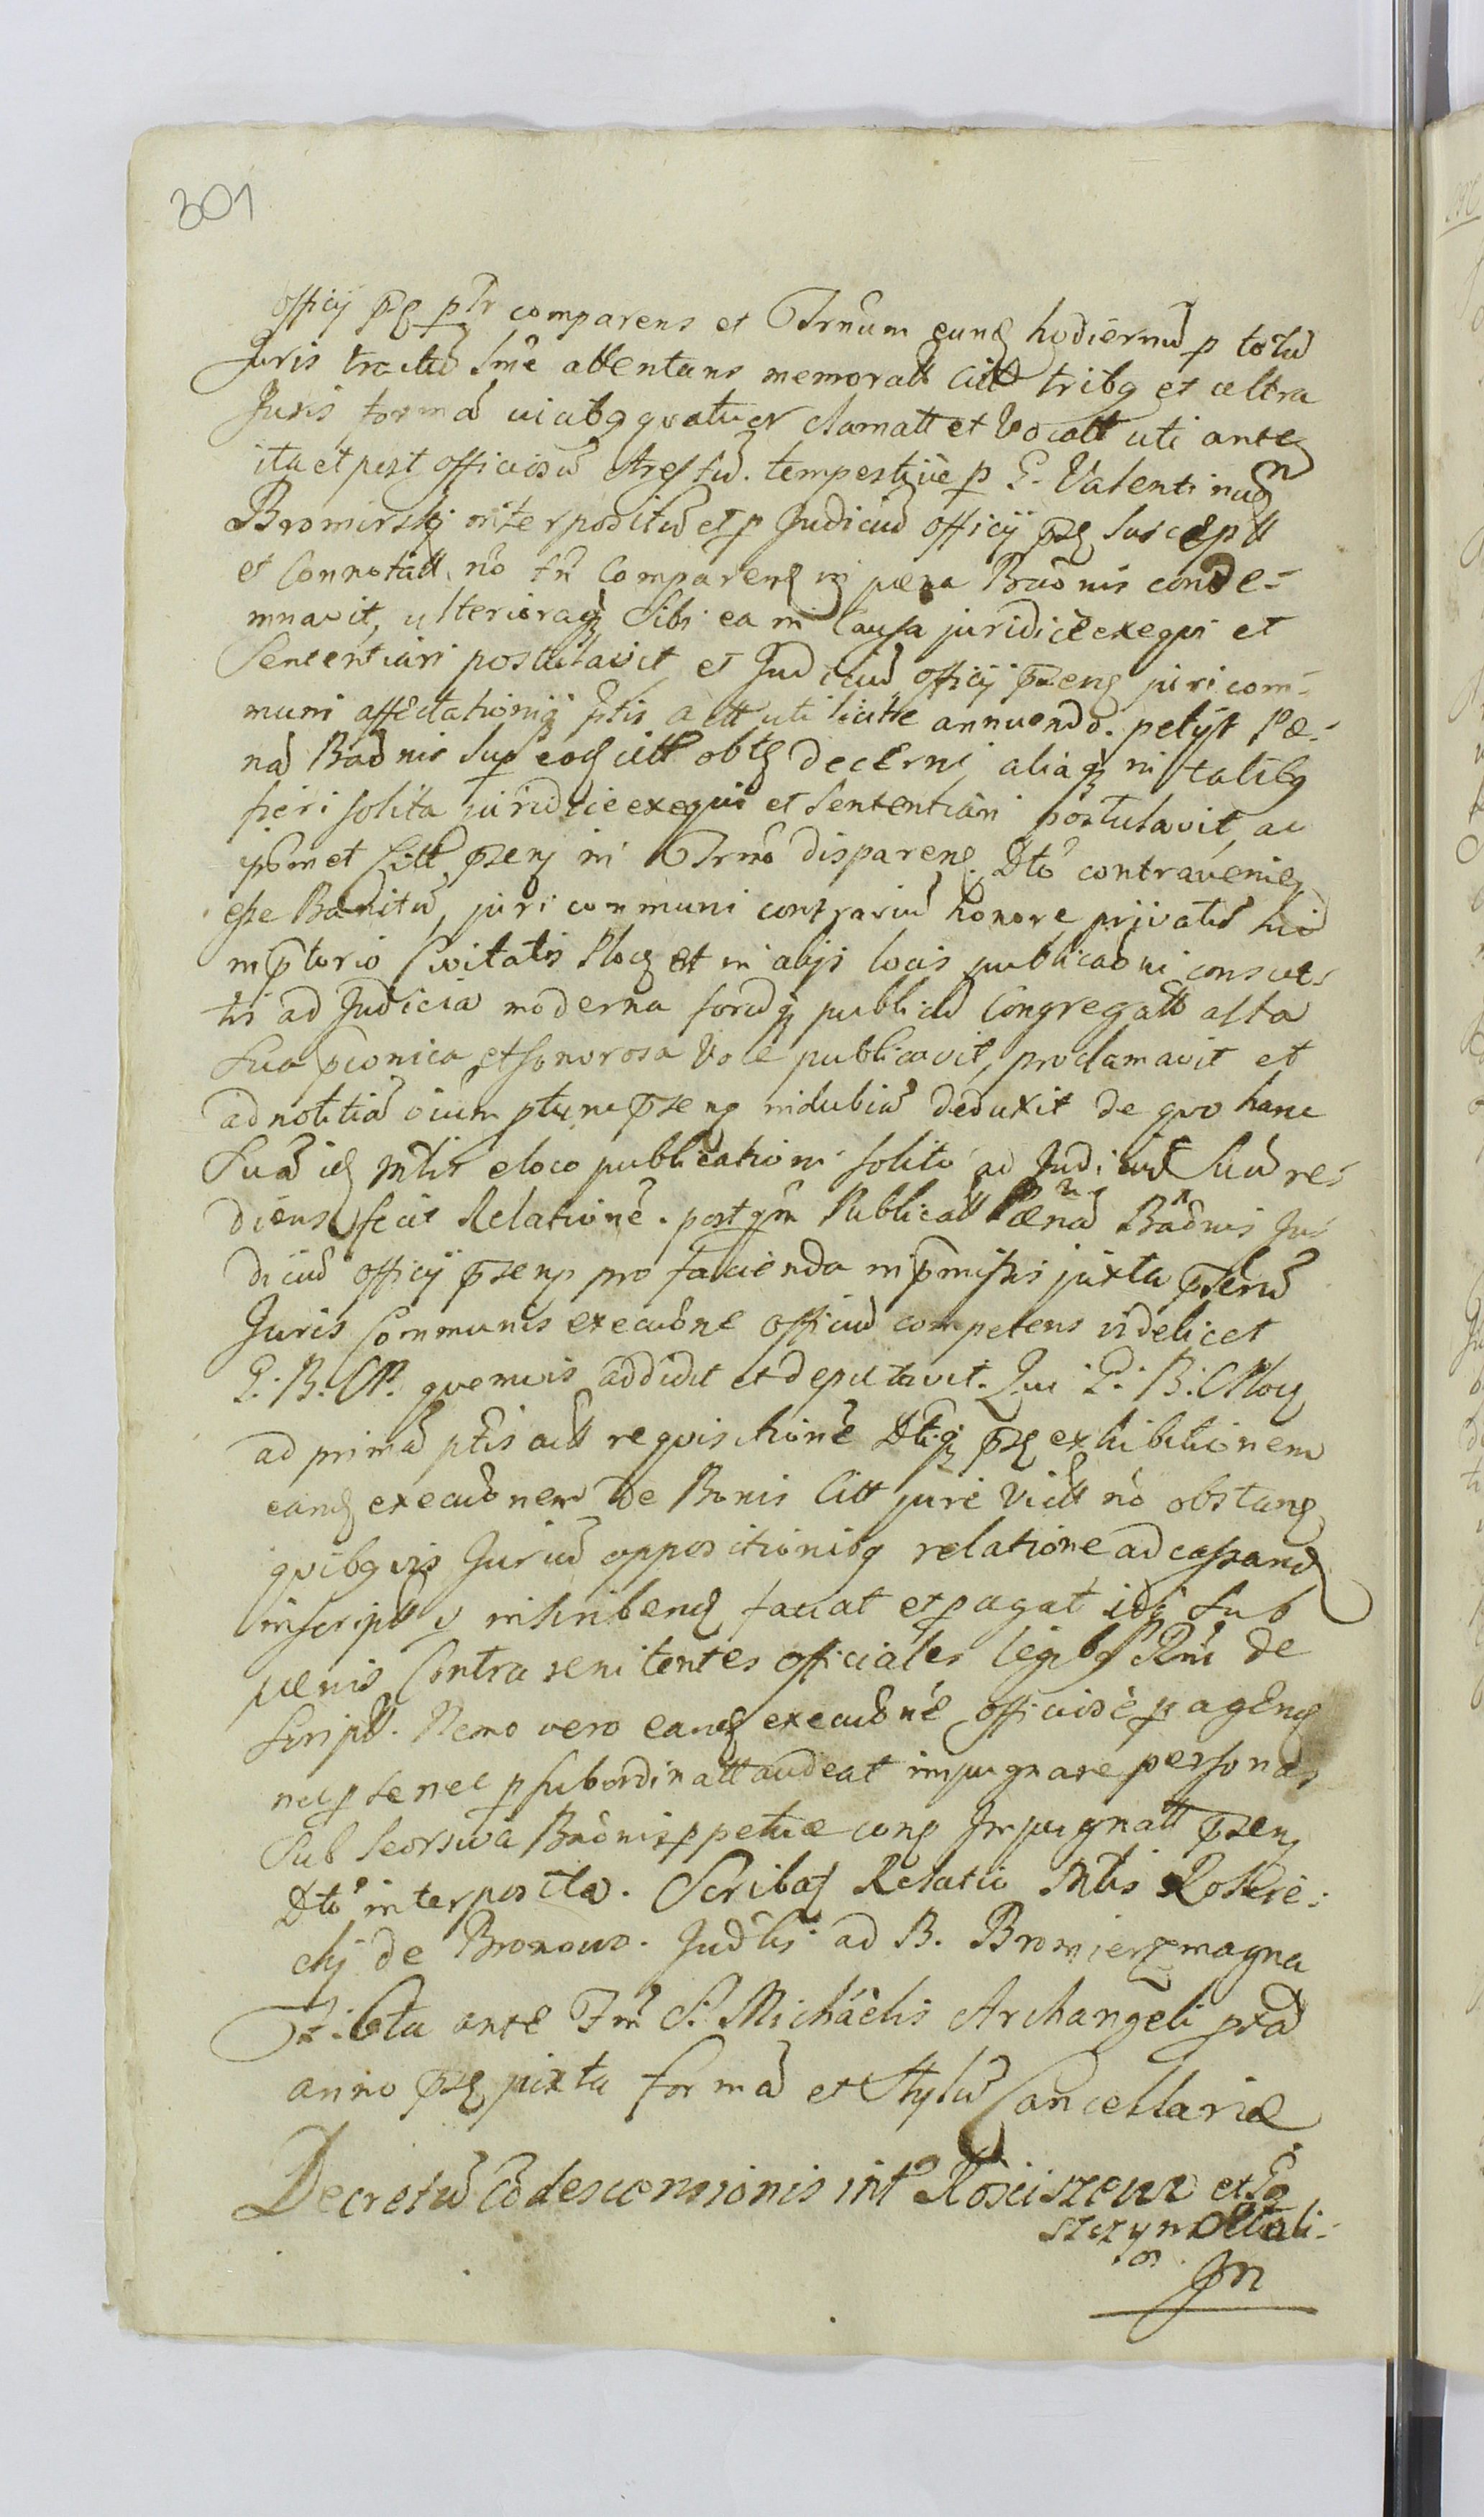 301
officij pñs pltr comparens et Trnum eund hodiernu p totu
Juris tractu sme attentans memoratt Citt tribg et ultra
Juris forma vicibg quatuor clamatt et Vocatt uti ante
ita et post officiosu Arestu. tempestive p G. Valentinu
Bromirskj interpositu et p Judiciu officij pns suscept
et Connotatt. no tn Comparen in pæna Bãonis conde-
mnavit, ulterioraq Sibi ea in Causa juridice exequi et
Sententiari postulavit, et Judiciu officij pnens juri com-
muni affectationiq ptis actt uti licite annuendo. petijt Pæ-
na Bãonis sup eod citt obtd decerni, aliaq in talibg
fieri solita juridice exequi et sententiari postulavit, ac
ipmet Citt pnens in Trno disparens. Dto contravenien
esse Banitu, juri communi contrariu honore privatu hic
in ptorio Civitatis Ploc et in alijs locis publicaõni consue-
tis ad Judicia moderna foruq publicu Congregatt alta
Sua pconica et sonorosa Voce publicavit, proclamavit et
ad notitia oium ptium pnens indubia deduxit de quo hanc
Sua id Mtlis e loco publicationi solito ad Judiciu suu re-
diens fecit Relatione. post qm Publicatt Pæna Bãonis Ju-
diciu officij pnens pro facienda in pmissis juxta pscru
Juris Communis execuõne officiu competens videlicet
G. B. CP. quemvis addidit et deputavit. Qui G. B. CPloc
ad prima ptis actt requisitione Dtiq pns exhibitionem
eand execuõnem de Bonis Citt jure Victt no obstan
quibgvis Juriu oppositionibg relatione ad cassand
inscriptt v inscribend faciat et pagat idq sub
pænis Contra renitentes officiales legibg Rni de
script. Nemo vero eand execuõne officiose p agend
nec p se nec p subordinatt audeat impugnare personas
Sub seorsiva Bãonis ppetuæ conq Impugnatt pnens
Dto interposita. Scribat Relatio Mtlis
de Bronowo. Judlis ad B. Bromierz magna
ante Fm S. Michaelis Archangeli pxa
anno pns juxta forma et Stylu Cancellariæ
Decretu Cõdescensionis int Rościszewr et Go
szczyn
Jn